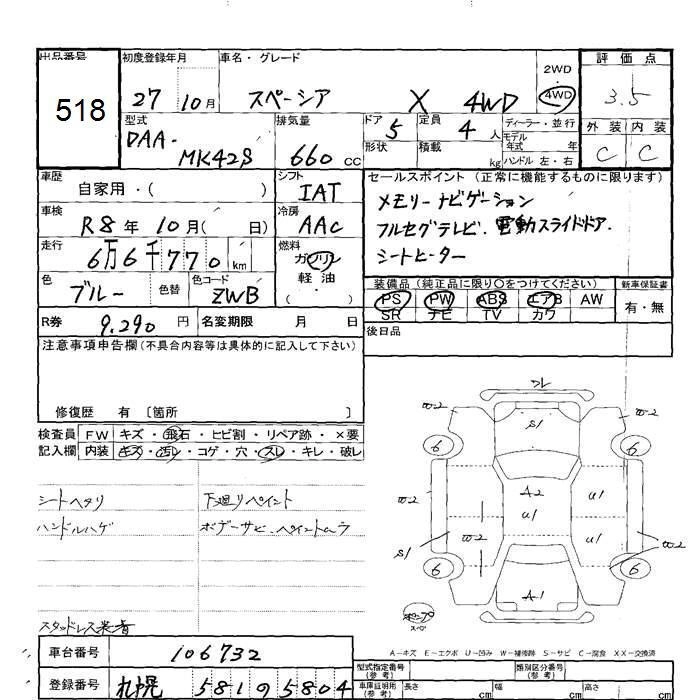 出品番号 初度登録年月 車名・グレード 評価点
518 27 10月 スペーシア X 4WD 2WD 4WD 3.5
型式 排気量 ドア 定員 ディーラー・並行 外装 内装
DAA- MK42S 660 CC 5 4 人 モデル年式 年 C C
形状 積載 kg ハンドル 左・右
車歴 自家用・( ) シフト IAT セールスポイント (正常に機能するものに限ります)
車検 R8年 10月( 日) 冷房 AAC メモリーナビゲーション
フルセグテレビ.電動スライドドア.
走行 6万6千770 km 燃料 ガソリン 軽油 ・( ) シートヒーター
色 ブルー 色替 色コード ZWB 装備品 (純正品に限り〇をつけてください) 新車保証書
PS PW ABS エアB AW 有・無
SR ナビ TV カワ
R券 9.290 円 名変期限 月 日 後日品
注意事項申告欄(不具合内容等は具体的に記入して下さい)
修復歴 有 〔箇所 〕
検査員 FW キズ・飛石・ヒビ割・リペア跡・×要
記入欄 内装 キズ・汚レ・コゲ・穴・スレ・キレ・破レ
シートヘタリ 下廻りペイント
ハンドルハゲ ボデーサビ.ペイントムラ
W-2 S1 W-2
6 6
W-2 A2 U1 U1
S1 W-2 U1 W-2
6 6
A1
スペ
スタッドレス装着
A-キズ E-エクボ U-凹み W-補修跡 S-サビ C-腐食 XX-交換済
車台番号 106732
型式指定番号(参考) 類別区分番号(参考)
登録番号 札幌 581 の 5804
車庫証明用(参考) 長さ cm 幅 cm 高さ cm